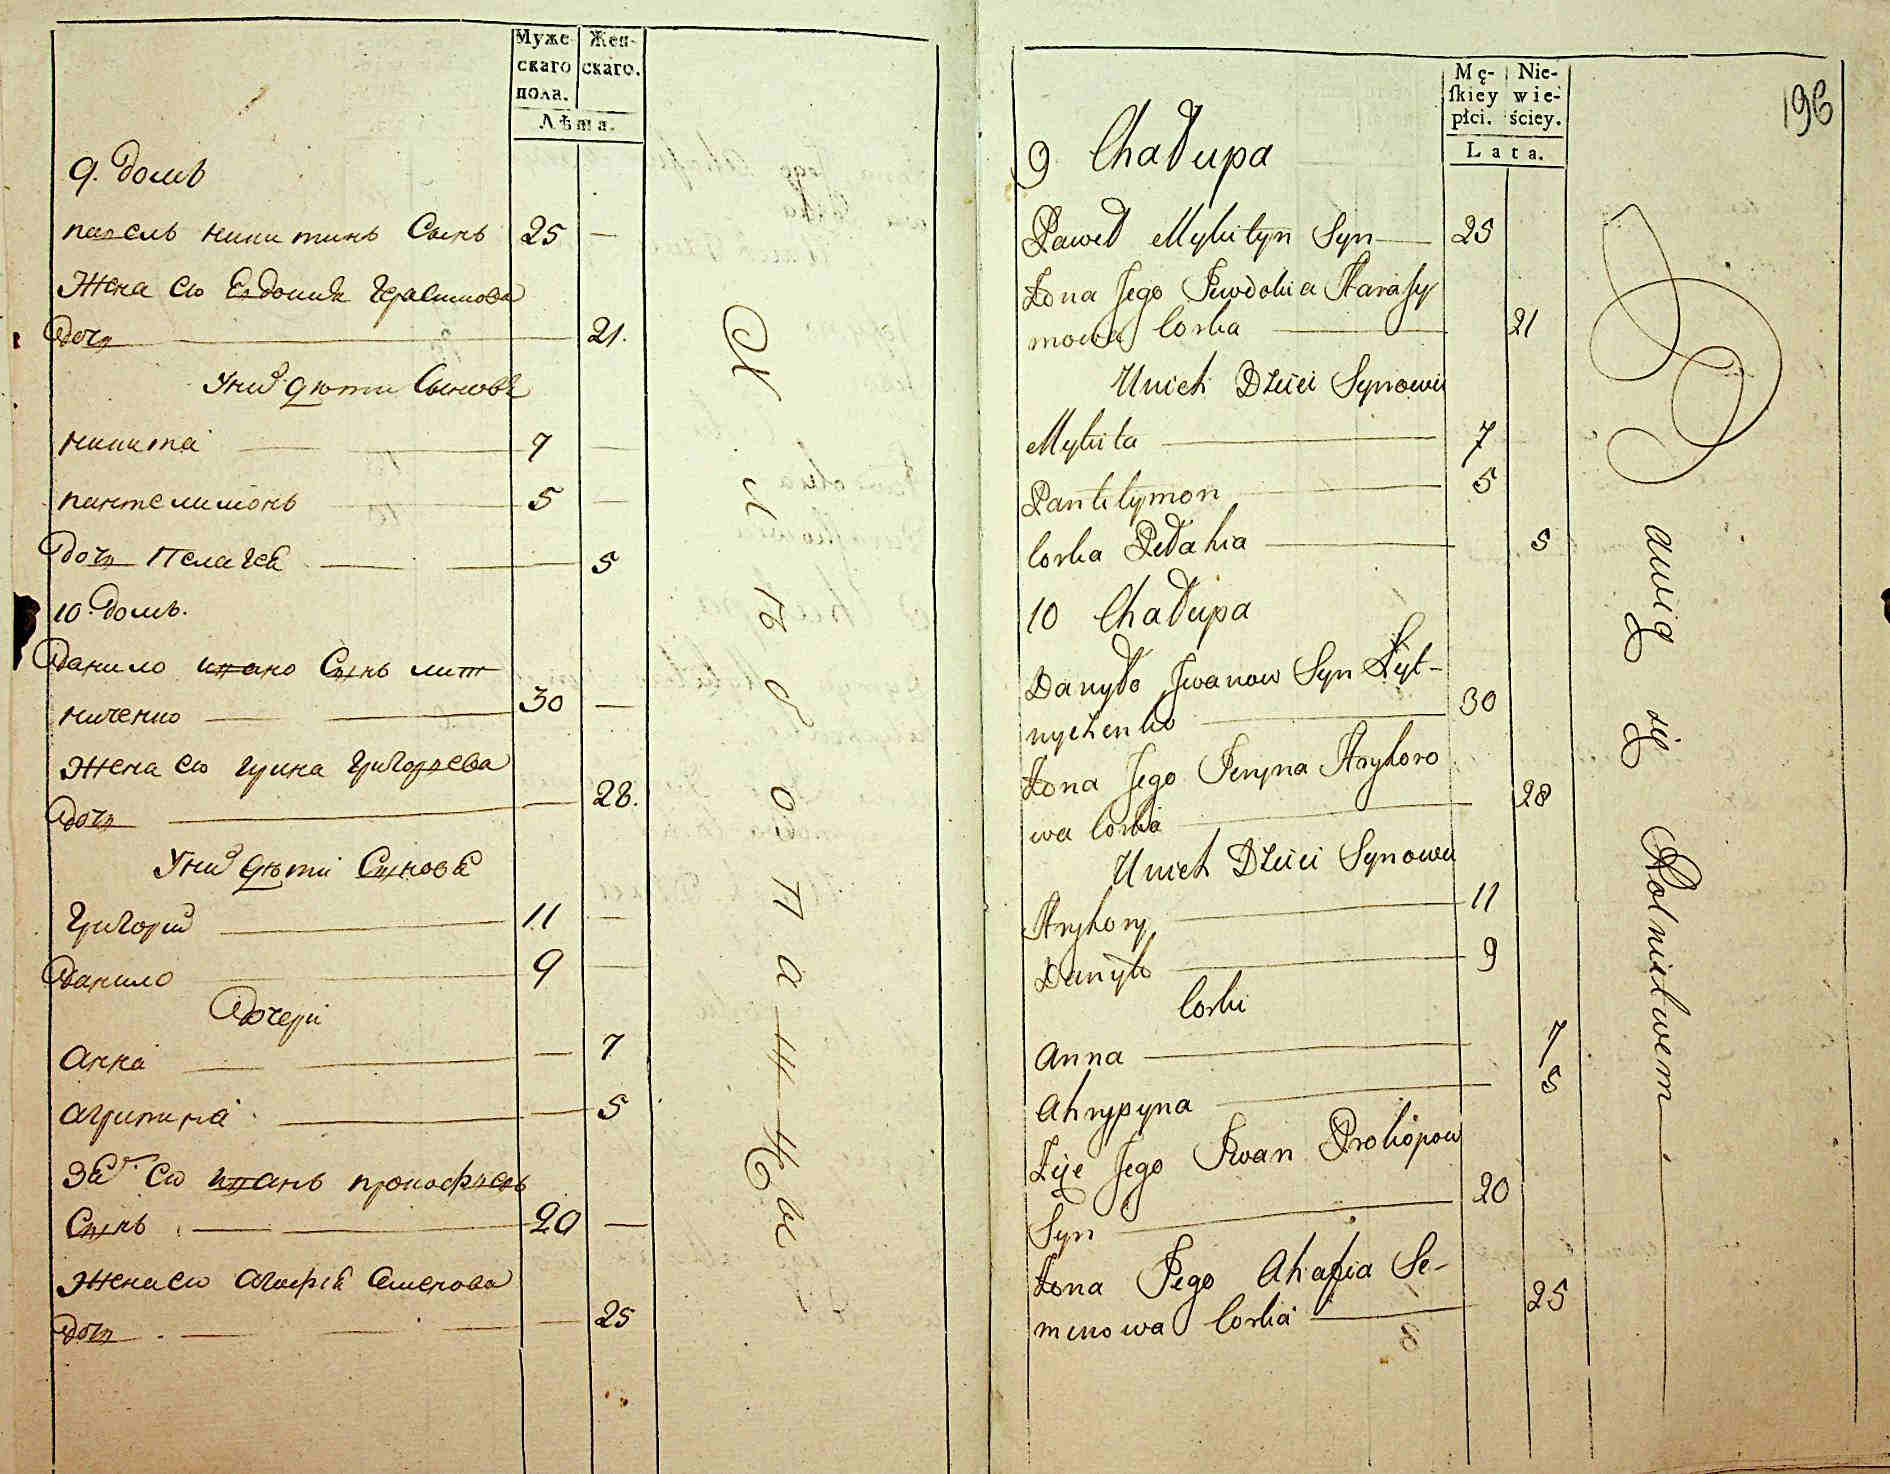 Муже- Жен-
скаго скаго.
пола.
Лѣта.
9. домъ
павелъ никитинъ Сынъ 25 —
Жена ею Евдокия Герасимова
дочь — 21.
У них дѣти Сыновя
никита — 7 —
пантелимонъ — 5 —
дочь Пелагея — 5
10. домъ.
Данило ивано Сынъ лит
ниченко — 30 —
Жена ею ирина григорьева
дочь — 28.
У них дѣти Сыновя
Григорий — 11 —
Данило — 9 —
Дочери
Анна — 7
Агрипина — 5
Зять ею иванъ прокофьевъ
Сынъ — 20 —
Жена ею Агафия Семенова
дочь — 25
196
Mę- Nie-
ſkiey wie-
płci. ściey.
Lata.
9 Chałupa
Paweł Mykityn Syn — 25
Żona Jego Jewdokia Harasy
mowa Corka — 21
Unich Dzieci Synowie
Mykita — 7
Pantelymon — 5
Corka Pełahia — 5
10 Chałupa
Danyło Jwanow Syn Lyt-
nychenko — 30
Żona Jego Jeryna Hryhoro
wa Corka — 28
Unich Dzieci Synowie
Hryhory — 11
Danyło — 9
Corki
Anna — 7
Ahrypyna — 5
Zięc Jego Jwan Prokopow
Syn — 20
Żona Jego Ahafia Se-
menowa Corka — 25
Bawią się Rolnictwem